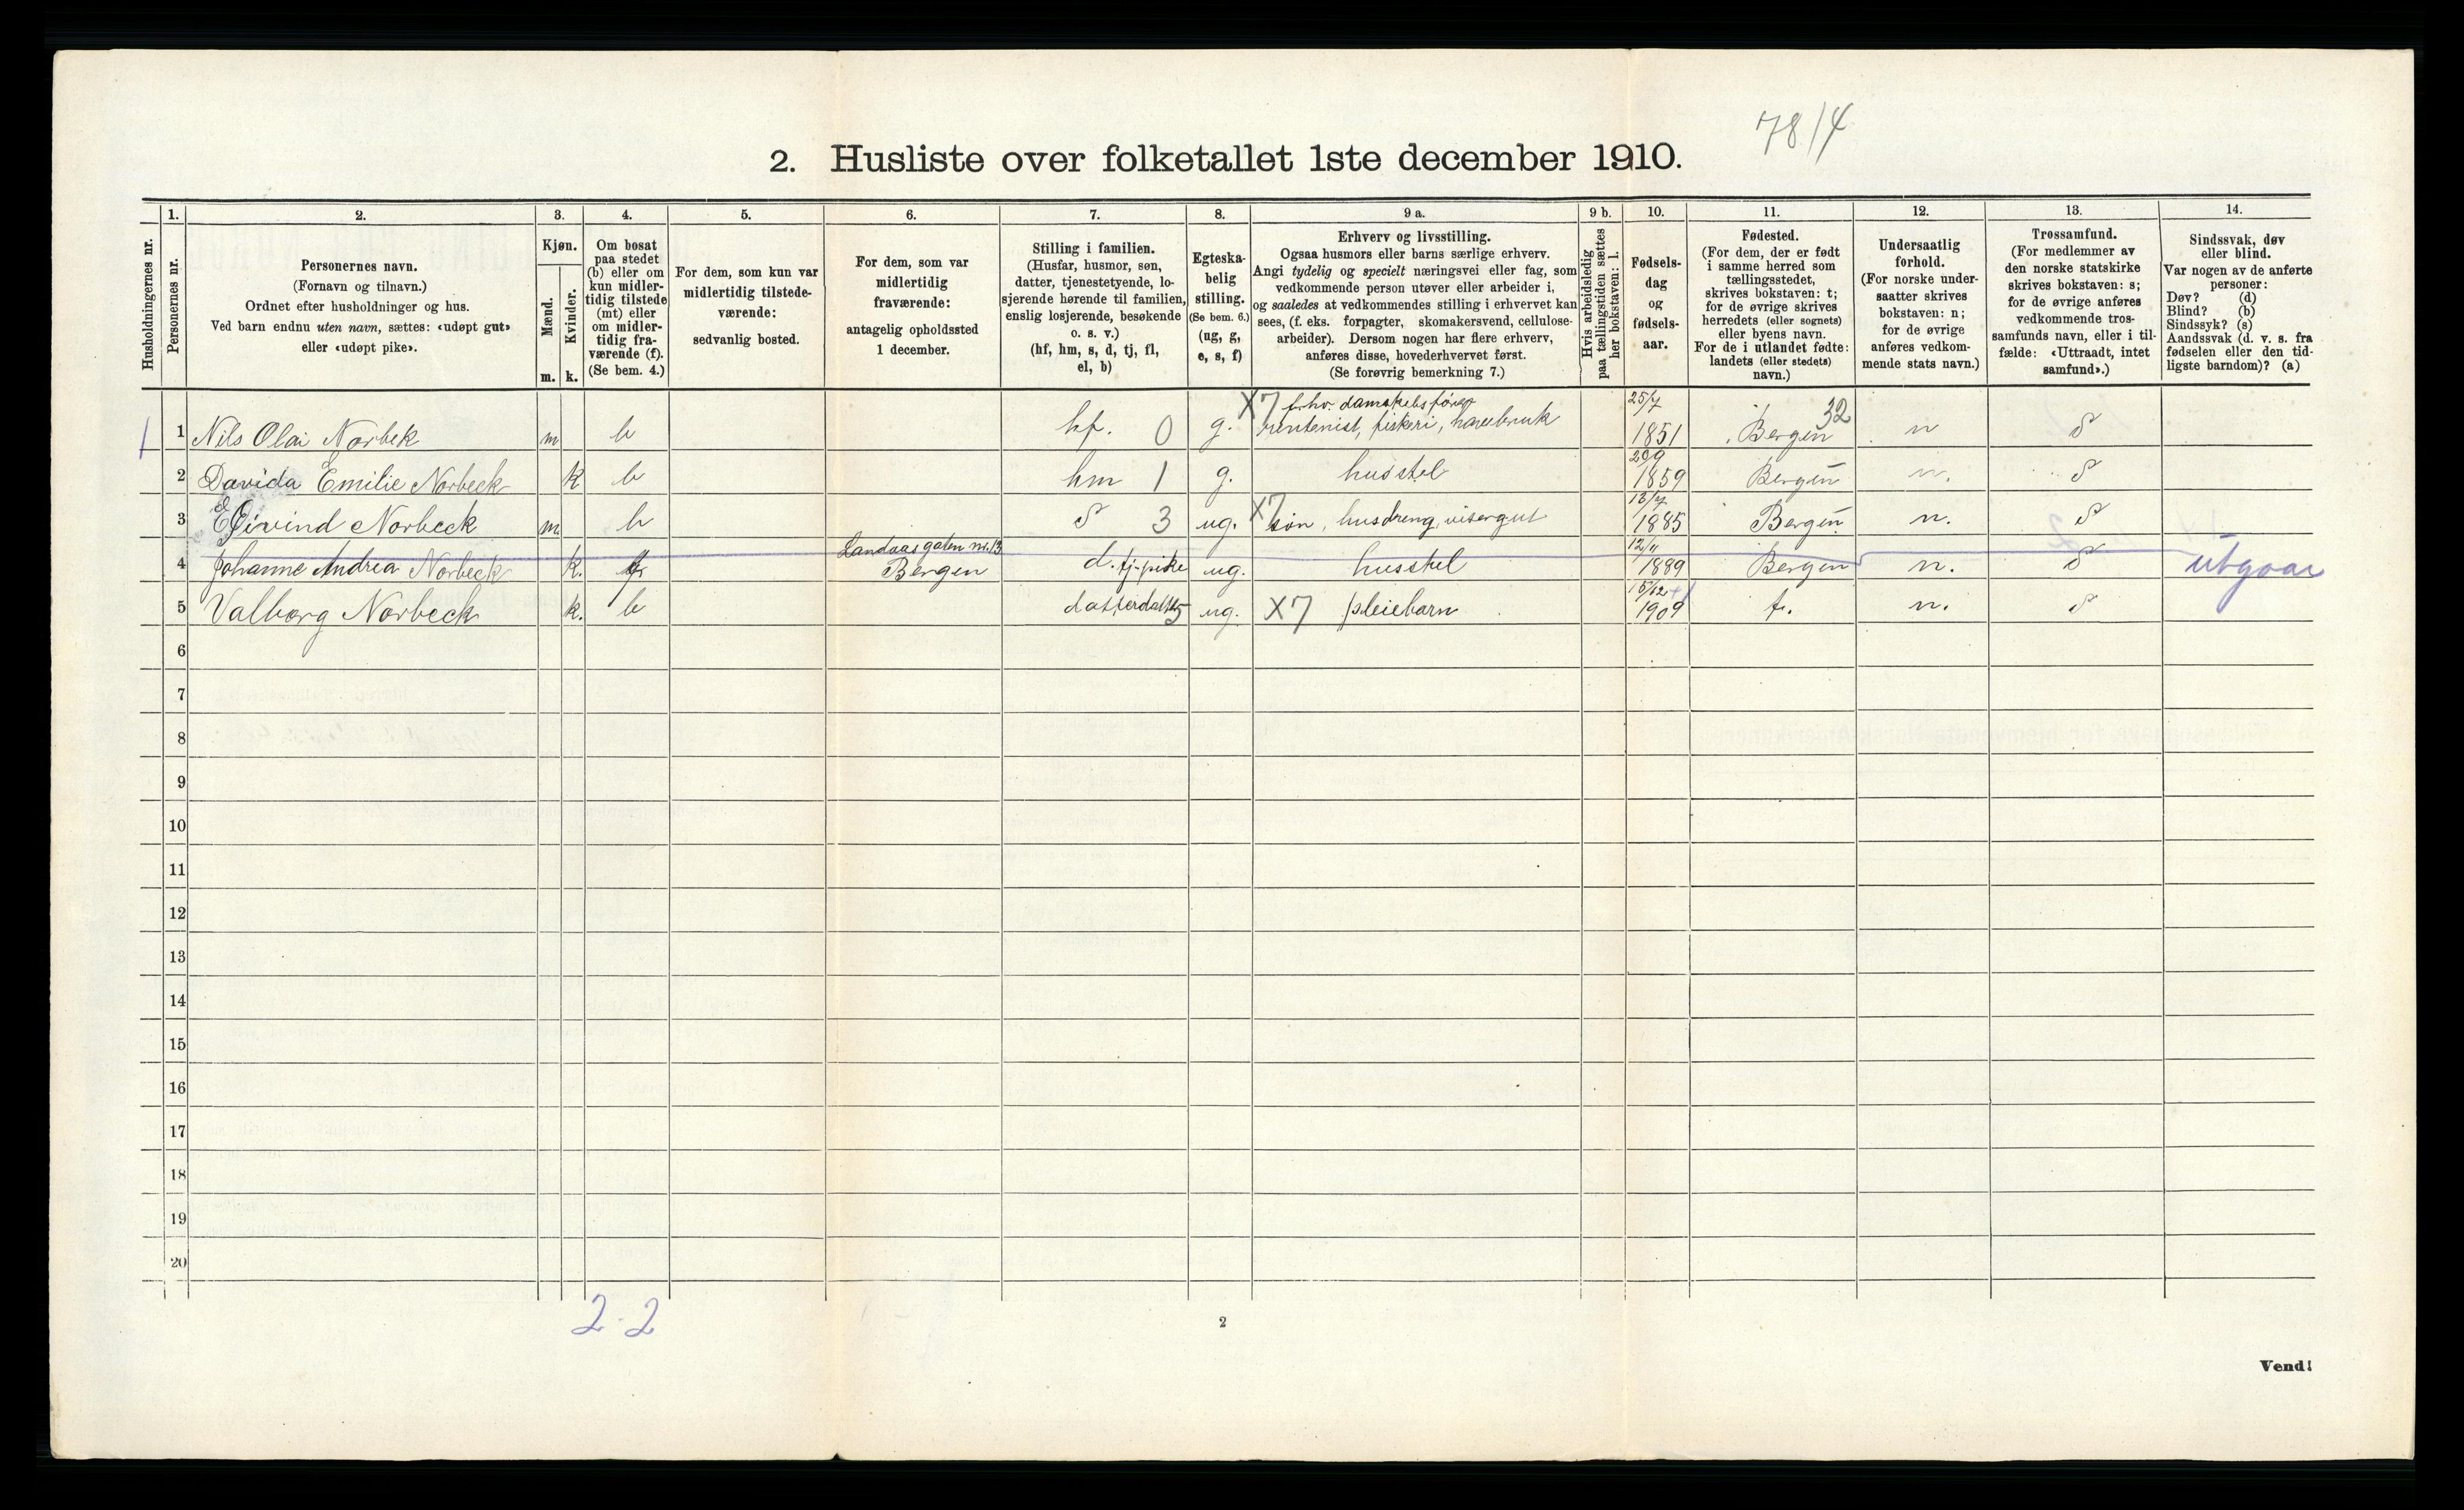 78/4
2. Husliste over folketallet 1ste december 1910.
Husholdningernes nr.
1.
Personernes nr.
2.
Personernes navn.
(Fornavn og tilnavn.)
Ordnet efter husholdninger og hus.
Ved barn endnu uten navn, sættes: «udøpt gut»
eller «udøpt pike».
3.
Kjøn.
Mænd.
Kvinder.
m. k.
4.
Om bosat
paa stedet
(b) eller om
kun midler-
tidig tilstede
(mt) eller
om midler-
tidig fra-
værende (f).
(Se bem. 4.)
5.
For dem, som kun var
midlertidig tilstede-
værende:
sedvanlig bosted.
6.
For dem, som var
midlertidig
fraværende:
antagelig opholdssted
1 december.
7.
Stilling i familien.
(Husfar, husmor, søn,
datter, tjenestetyende, lo-
sjerende hørende til familien,
enslig losjerende, besøkende
o. s. v.)
(hf, hm, s, d, tj, fl,
el, b)
8.
Egteska-
belig
stilling.
(Se bem. 6.)
(ug, g,
e, s, f)
9 a.
Erhverv og livsstilling.
Ogsaa husmors eller barns særlige erhverv.
Angi tydelig og specielt næringsvei eller fag, som
vedkommende person utøver eller arbeider i,
og saaledes at vedkommendes stilling i erhvervet kan
sees, (f. eks. forpagter, skomakersvend, cellulose-
arbeider). Dersom nogen har flere erhverv,
anføres disse, hovederhvervet først.
(Se forøvrig bemerkning 7.)
9 b.
Hvis arbeidsledig
paa tællingstiden sættes
her bokstaven: l.
10.
Fødsels-
dag
og
fødsels-
aar.
11.
Fødested.
(For dem, der er født
i samme herred som
tællingsstedet,
skrives bokstaven: t;
for de øvrige skrives
herredets (eller sognets)
eller byens navn.
For de i utlandet fødte:
landets (eller stedets)
navn.)
12.
Undersaatlig
forhold.
(For norske under-
saatter skrives
bokstaven: n;
for de øvrige
anføres vedkom-
mende stats navn.)
13.
Trossamfund.
(For medlemmer av
den norske statskirke
skrives bokstaven: s;
for de øvrige anføres
vedkommende tros-
samfunds navn, eller i til-
fælde: «Uttraadt, intet
samfund».)
14.
Sindssvak, døv
eller blind.
Var nogen av de anførte
personer:
Døv? (d)
Blind? (b)
Sindssyk? (s)
Aandssvak (d. v. s. fra
fødselen eller den tid-
ligste barndom)? (a)
X7 25/7 32
1 1 Nils Olai Norbek m b hf. 0 g. rentenist, fiskeri, 1851 Bergen n s
2 Davida Emilie Norbeck k b hm 1 g. husstel 1859 Bergen n. s
13/7
3 Øivind Norbeck m b s 3 ug. X7 søn, husdreng, visergut 1885 Bergen n. s
Landaasgaten nr. 13 12/11
4 Johanne Andrea Norbeck k. f Bergen d. tj-pike ug. husstel 1889 Bergen n. s utgaar
15/12
5 Valborg Norbeck k. b 5 ug. X7 pleiebarn 1909 t. n. s
6
7
8
9
10
11
12
13
14
15
16
17
18
19
20
2-2
2
Vend!